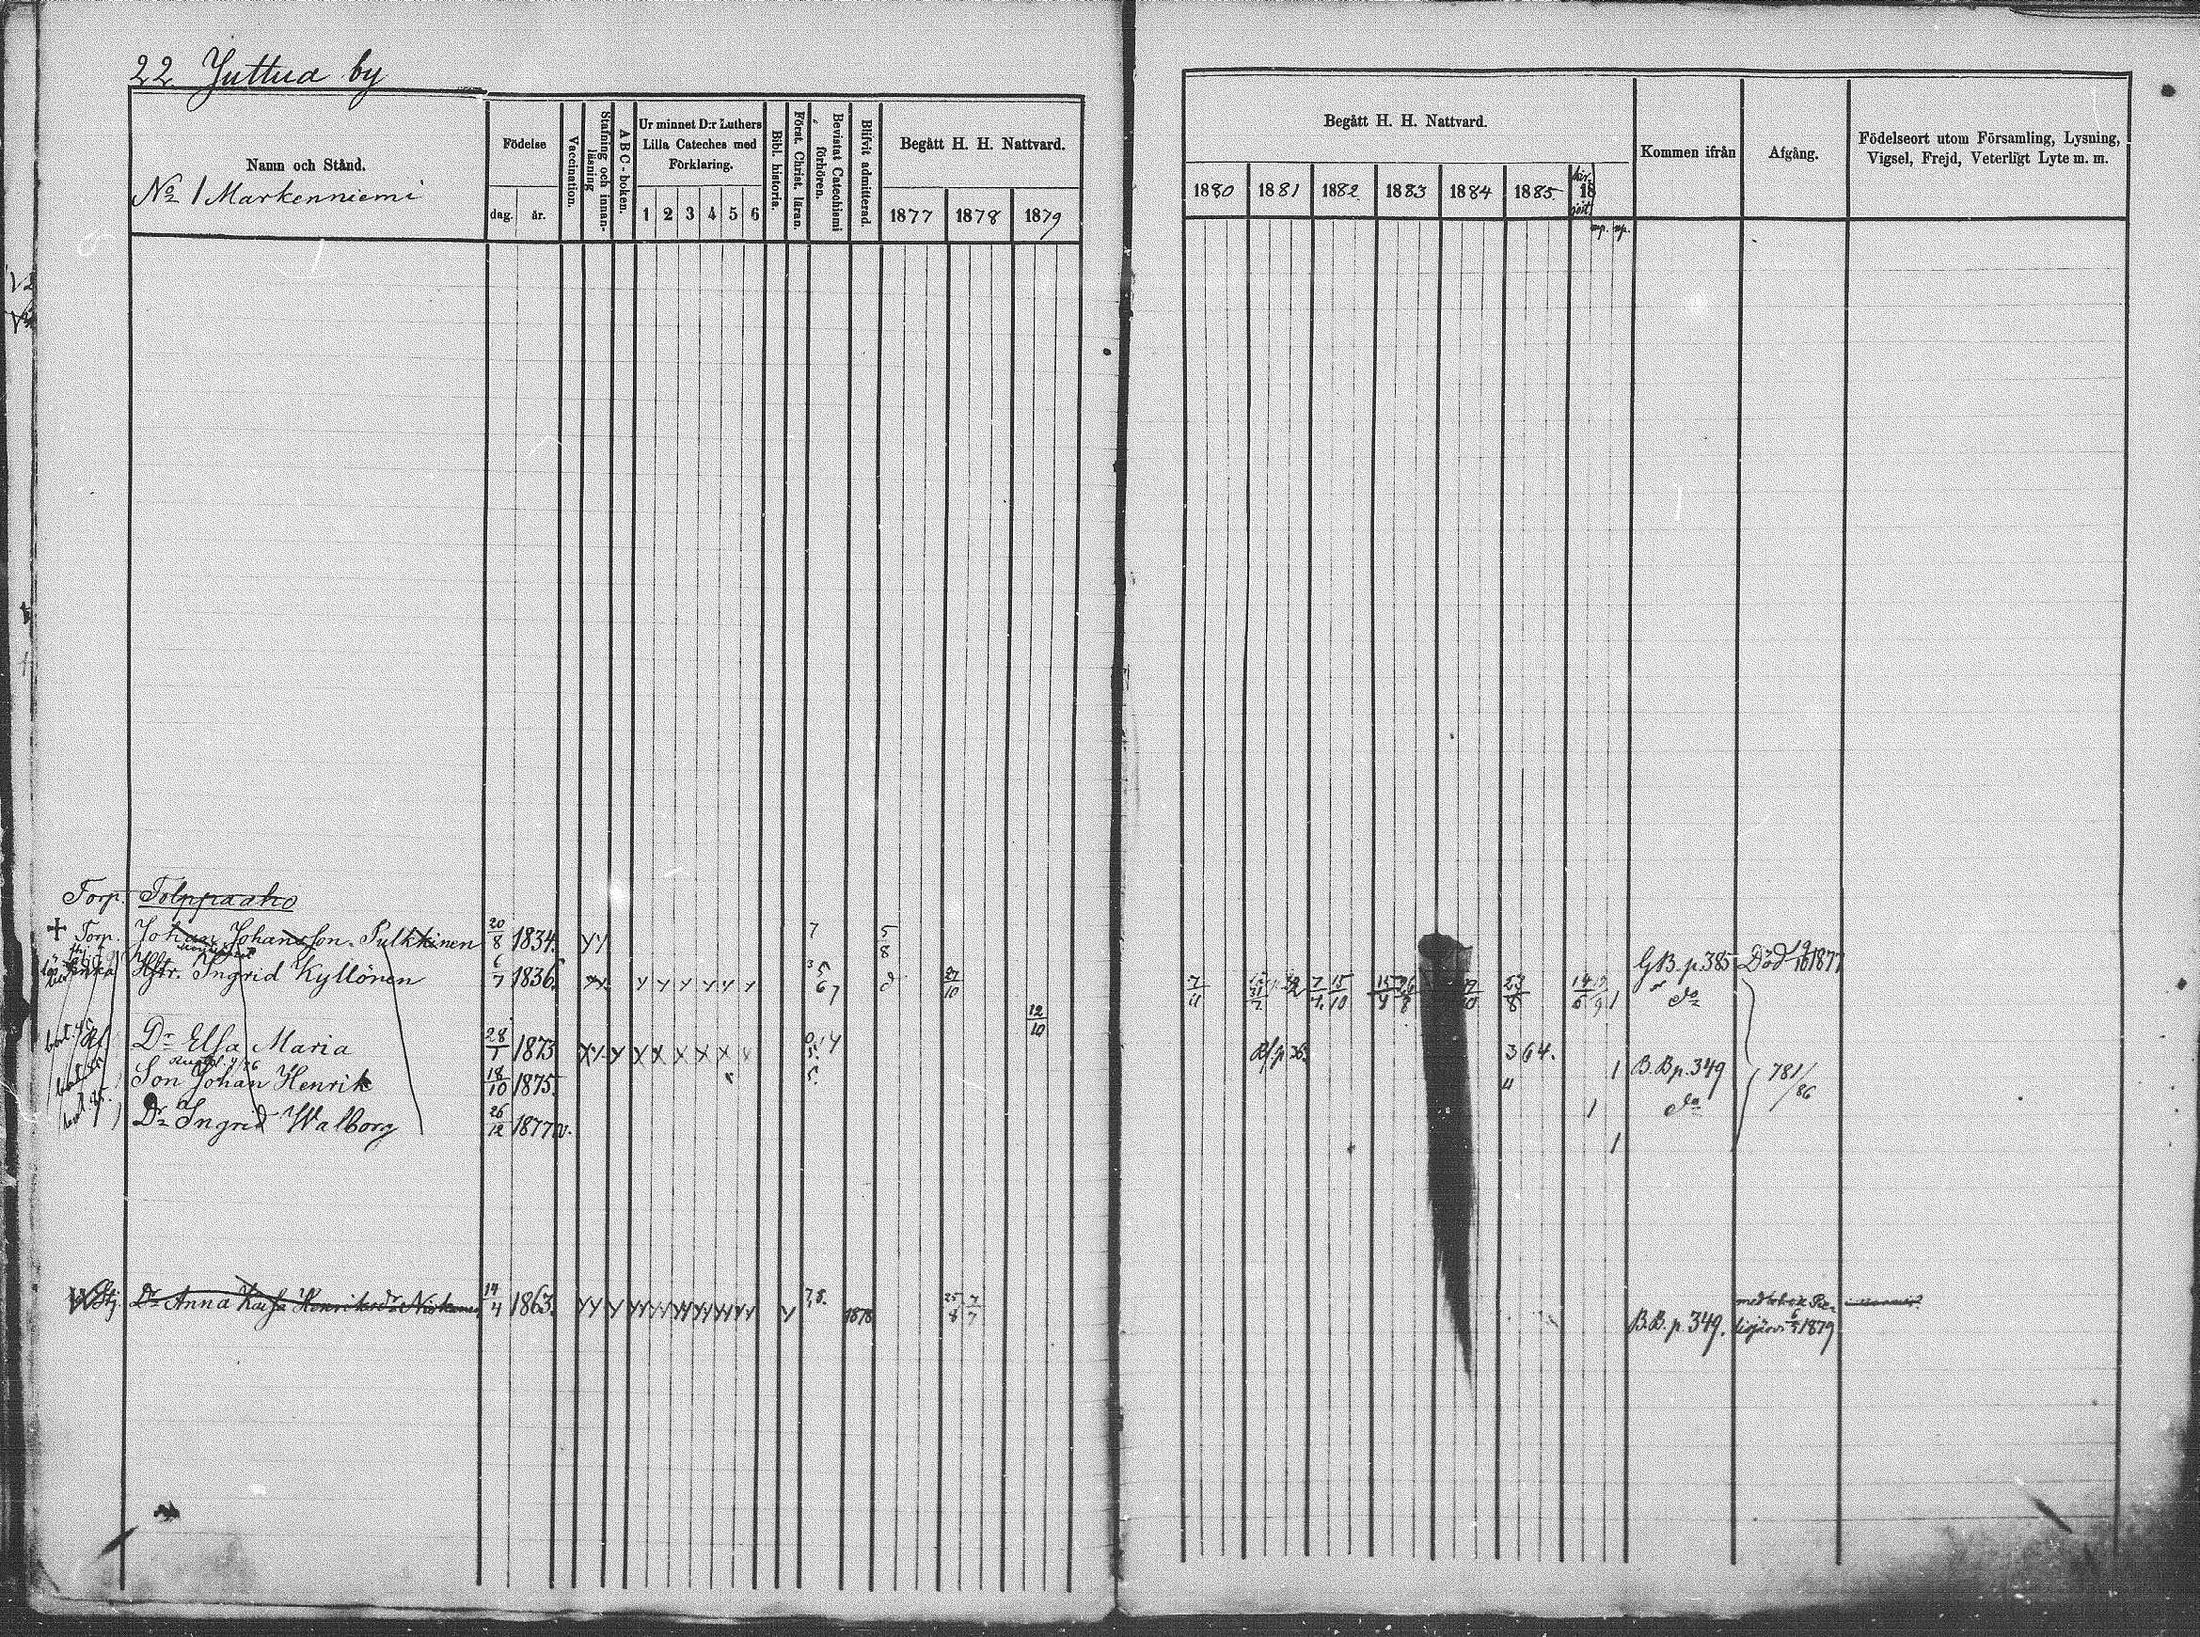 22. Juttua by
Namn och Stånd.
No 1 Markenniemi
Födelse
dag. år.
Vaccination.
Stafning och innan-läsning
ABC-boken.
Ur minnet D:r Luthers Lilla Cateches med Förklaring.
1 2 3 4 5 6
Bibl. historia.
Först. Christ. läran.
Bevistat Catechismi förhören.
Blifvit admitterad.
Begått H. H. Nattvard.
1877 1878 1879
Begått H. H. Nattvard.
1880 1881 1882 1883 1884 1885 18
Kommen ifrån
Afgång.
Födelseort utom Församling, Lysning, Vigsel, Frejd, Veterligt Lyte m. m.
Torp. Tolppaaho
+ Torp. Johan Johansson Pulkkinen 20/8 1834. 7 5/8 G.B. p. 385 Död 1877
Enka Hstr. Ingrid Kyllönen 6/7 1836. 27/10 7/4 7/4 15/10 23/8 do
12/10
Dr Elsa Maria 28/1 1873 3 64.
Son Johan Henrik 18/10 1875. 5. 1 B.B. p. 349 781/86
Dr Ingrid Walborg 26/12 1877 v. 1 do
1
Dr Anna Kaisa Henriksdr 14/4 1863. 7,8. 1878 25/8 7/7 B.B. p. 349. 1879